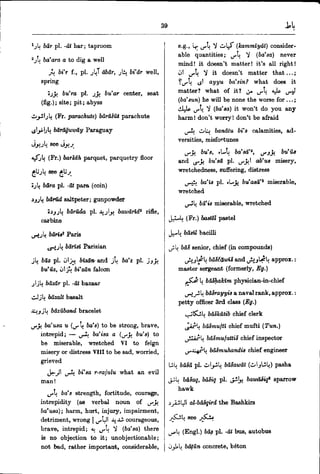 بأر
بار bār pl. -āt bar; taproom
بأر ba'ara a to dig a well
بئر bi'r f., pl. آبار ābār, بئار bi'ār well, spring
بؤرة bu'ra pl. بؤر bu'ar center, seat (fig.); site; pit; abyss
باراشوت (Fr. parachute) bārāšūt parachute
باراغواي bārāguwāy Paraguay
بارومتر see باروم
باركيه (Fr.) barkēh parquet, parquetry floor
باريوم see
بارة bāra pl. -āt para (coin)
بارود bārūd saltpeter; gunpowder
بارودة bārūda pl. بواريد bawārīd² rifle, carbine
باريس bārīs² Paris
باريسي bārīsī Parisian
باز bāz pl. بيزان bīzān and بأز ba'z pl. بؤوز bu'ūz, بئزان bi'zān falcon
بازار bāzār pl. -āt bazaar
بازلت bāzalt basalt
بازوبند bāzūband bracelet
بؤس ba'usa u (بأس ba's) to be strong, brave, intrepid; — بئس ba'isa a (بؤس bu's) to be miserable, wretched VI to feign misery or distress VIII to be sad, worried, grieved
بئس الرجل bi'sa r-rajulu what an evil man!
بأس ba's strength, fortitude, courage, intrepidity (as verbal noun of بؤس ba'usa); harm, hurt, injury, impairment, detriment, wrong | ذو بأس courageous, brave, intrepid; لا بأس به (ba'sa) there is no objection to it; unobjectionable; not bad, rather important, considerable,
e.g., كمية لا بأس بها (kammīyāt) considerable quantities; لا بأس (ba'sa) never mind! it doesn't matter! it's all right! لا بأس ان it doesn't matter that ...; اي بأس ayyu ba'sin? what does it matter? what of it? من بأس (ba'sun) he will be none the worse for ...; لا بأس عليك (ba'sa) it won't do you any harm! don't worry! don't be afraid
بنات بئس banātu bi's calamities, adversities, misfortunes
بؤس bu's, بأساء ba'sā'², بؤوس bu'ūs and بؤسى bu'sā pl. ابؤس ab'us misery, wretchedness, suffering, distress
بئيس ba'is pl. بؤساء bu'asā'² miserable, wretched
بائس bā'is miserable, wretched
باستيل (Fr.) bastēl pastel
باسل bāsil bacilli
باش bāš senior, chief (in compounds)
باشجاويش bāščāwīš and باشجاويش approx.: master sergeant (formerly, Eg.)
باشحكيم bāšḥakīm physician-in-chief
باشريس bāšrayyis a naval rank, approx.: petty officer 3rd class (Eg.)
باشكاتب bāškātib chief clerk
باشمفتي bāšmuftī chief mufti (Tun.)
باشمفتش bāšmufattiš chief inspector
باشمهندس bāšmuhandis chief engineer
باشا bāšā pl. باشوات bāšawāt (باشاوات) pasha
باشق bāšaq, bāšiq pl. بواشق bawāšiq² sparrow hawk
الباشقرد al-bāšqird the Bashkirs
باشكير see بشكير
باص (Engl.) bāṣ pl. -āt bus, autobus
باطون bāṭūn concrete, béton